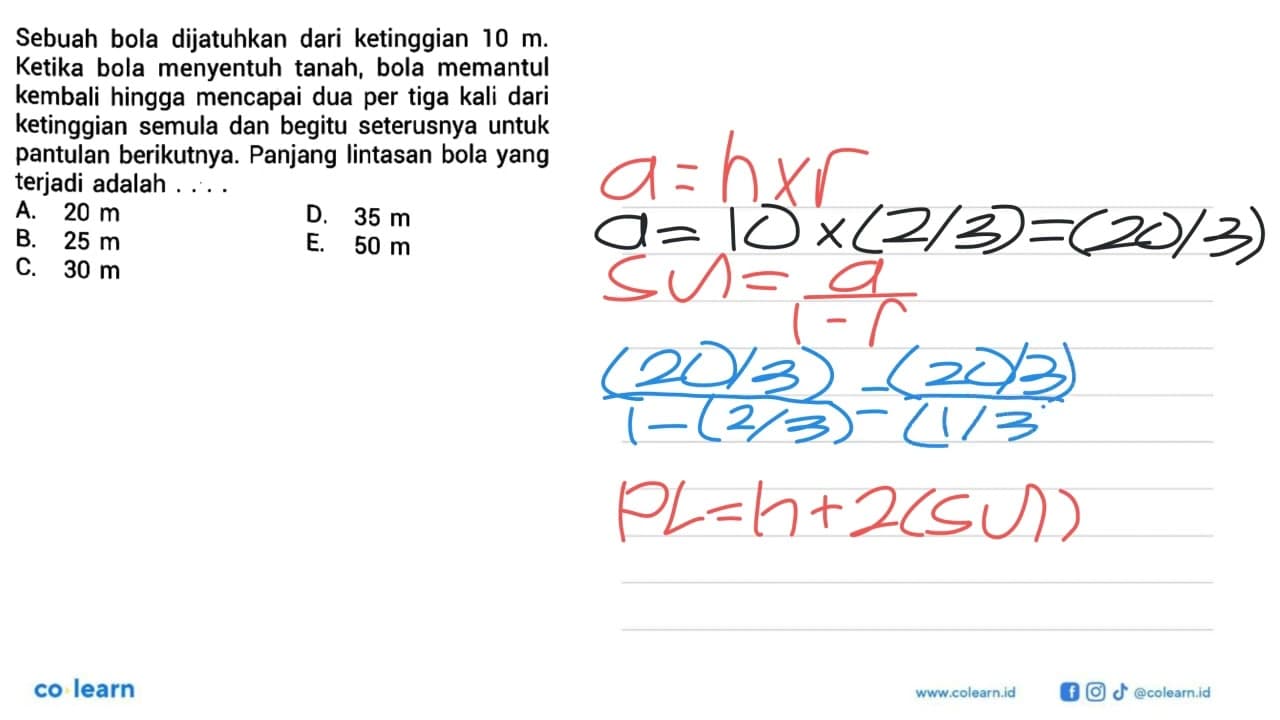 Sebuah bola dijatuhkan dari ketinggian 10 m.
Ketika bola menyentuh tanah, bola memantul
kembali hingga mencapai dua per tiga kali dari
ketinggian semula dan begitu seterusnya untuk
pantulan berikutnya. Panjang lintasan bola yang
terjadi adalah . . . .
A. 20 m
B. 25 m
C. 30 m
D. 35 m
E. 50 m
a = h x r
a = 10 x (2/3) = (20/3)
Sn = a
1 - r
(20/3) = (20/3)
1 - (2/3) = (1/3
PL = h + 2(Sn)
co learn
www.colearn.id
@colearn.id